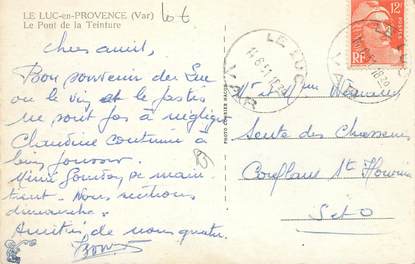 LE LUC-en-PROVENCE (Var)
Le Pont de la Teinture
Chers amis,
Bon souvenir du Luc
ou le vin et le pastis
ne sont pas à négliger
Claudine continue à
bien
se main
tient. Nous rentrons
dimanche.
Amitiés de nous quatre
PHOTO
LE LUC
VAR
12F
POSTES
RF
M et Mme
Sente des Chasseurs
Conflans Ste Honorine
S et O